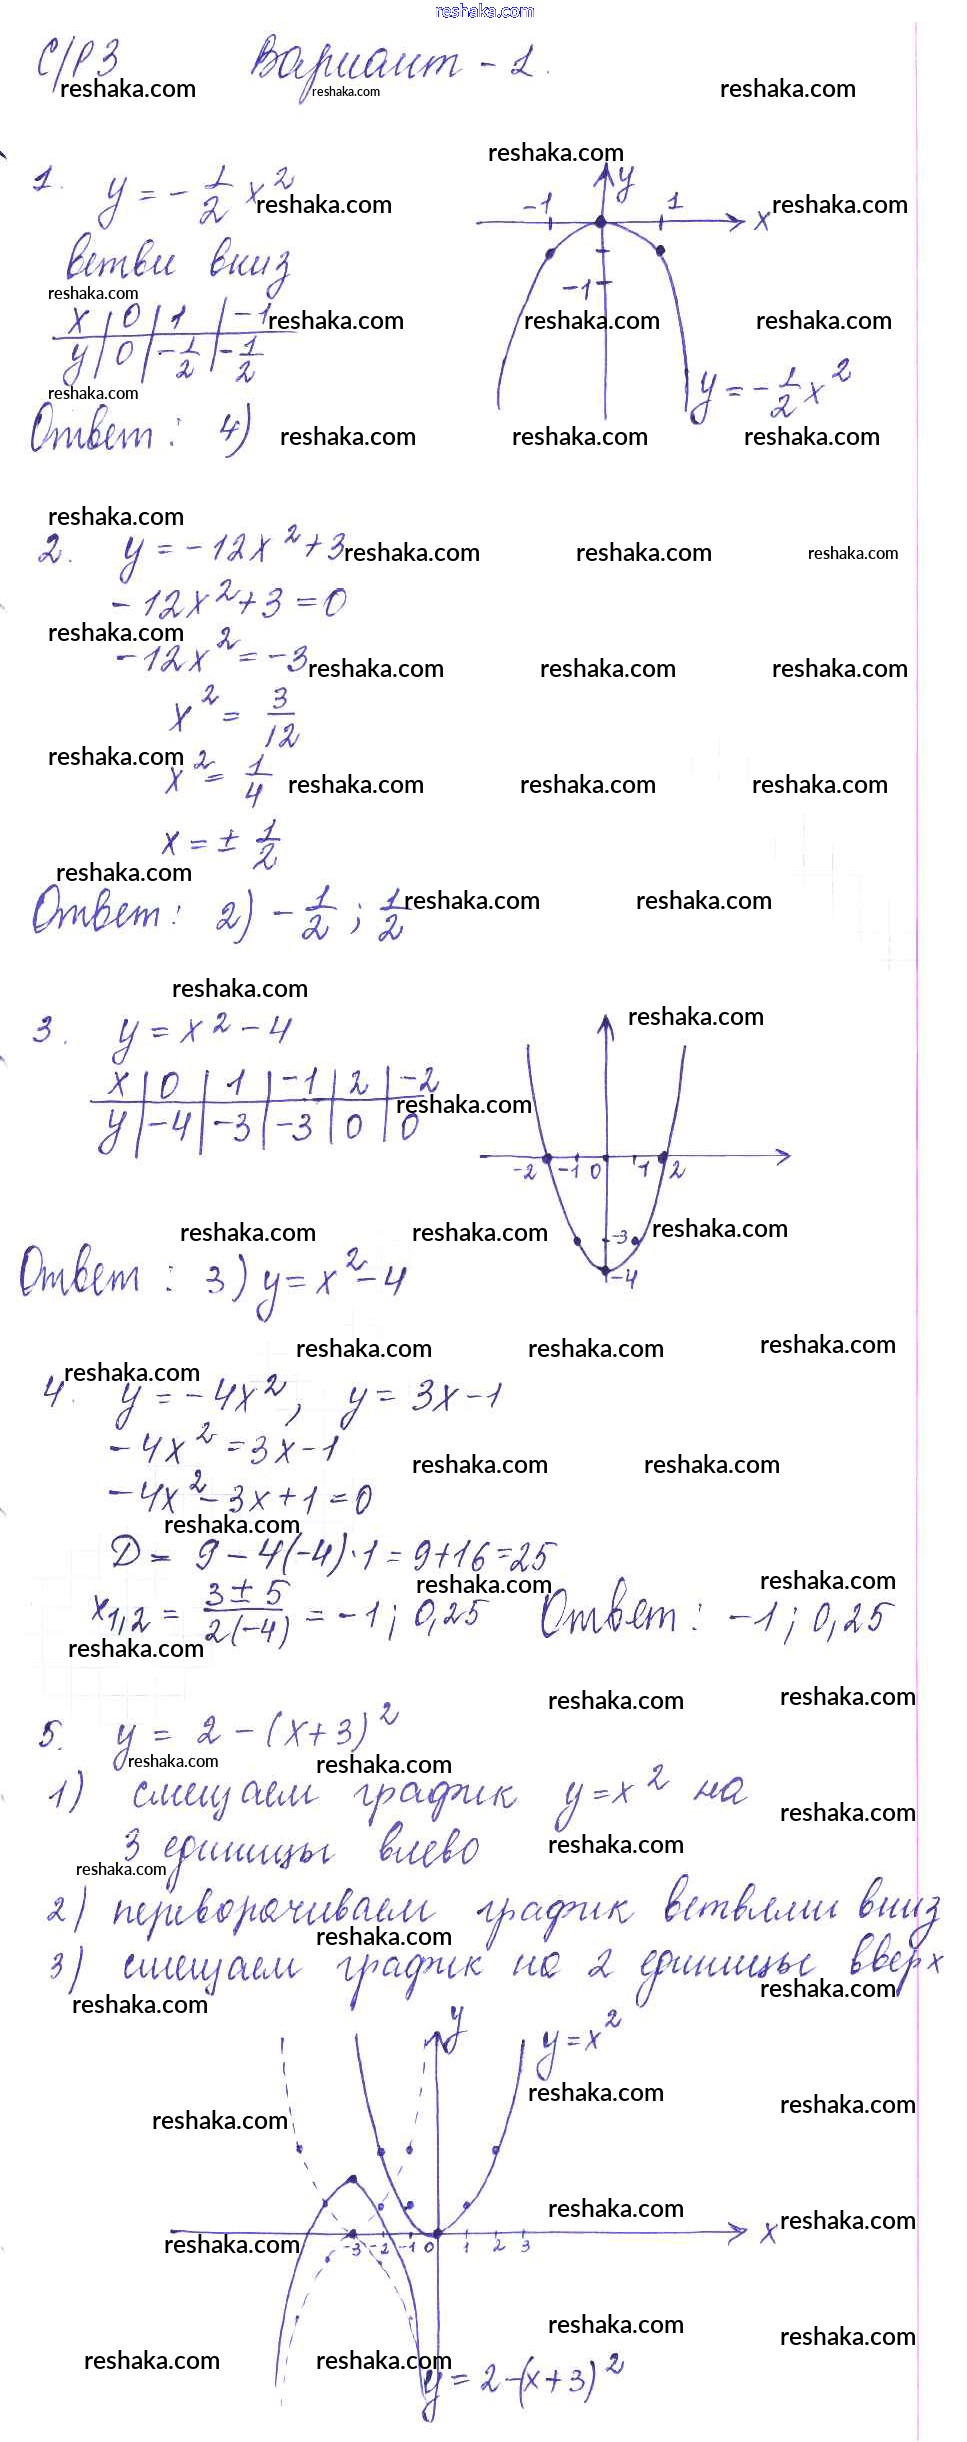 reshaka.com
С/Р 3 Вариант - 1.
reshaka.com reshaka.com reshaka.com
reshaka.com
y
1. y = - 1/2 x² reshaka.com -1 1 x reshaka.com
ветви вниз
reshaka.com -1
x | 0 | 1 | -1 reshaka.com reshaka.com reshaka.com
y | 0 | - 1/2 | - 1/2
y = - 1/2 x²
reshaka.com
Ответ: 4) reshaka.com reshaka.com reshaka.com
reshaka.com
2. y = -12x² + 3 reshaka.com reshaka.com reshaka.com
-12x² + 3 = 0
reshaka.com
-12x² = -3 reshaka.com reshaka.com reshaka.com
x² = 3/12
reshaka.com
x² = 1/4 reshaka.com reshaka.com reshaka.com
x = ± 1/2
reshaka.com
Ответ: 2) - 1/2 ; 1/2 reshaka.com reshaka.com
reshaka.com
3. y = x² - 4 reshaka.com
x | 0 | 1 | -1 | 2 | -2
reshaka.com
y | -4 | -3 | -3 | 0 | 0
-2 -1 0 1 2
reshaka.com reshaka.com -3 reshaka.com
Ответ: 3) y = x² - 4 -4
reshaka.com reshaka.com reshaka.com
reshaka.com
4. y = -4x², y = 3x - 1
-4x² = 3x - 1
reshaka.com reshaka.com
-4x² - 3x + 1 = 0
reshaka.com
D = 9 - 4(-4)·1 = 9 + 16 = 25
reshaka.com reshaka.com
x1,2 = 3 ± 5 / 2(-4) = -1; 0,25 Ответ: -1; 0,25
reshaka.com
reshaka.com reshaka.com
5. y = 2 - (x+3)²
reshaka.com reshaka.com
1) смещаем график y = x² на
reshaka.com
3 единицы влево reshaka.com
reshaka.com
2) переворачиваем график ветвями вниз
reshaka.com
3) смещаем график на 2 единицы вверх
reshaka.com
reshaka.com
y y = x²
reshaka.com reshaka.com
reshaka.com
reshaka.com reshaka.com
x
reshaka.com -3 -2 -1 0 1 2 3
reshaka.com reshaka.com
reshaka.com reshaka.com
y = 2 - (x+3)²